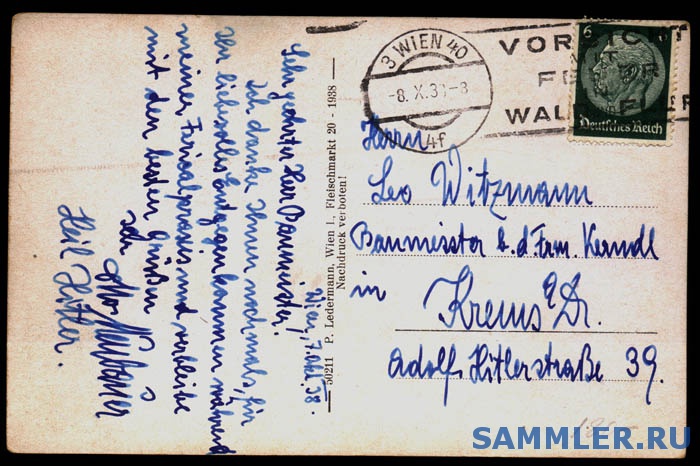 Wien, 7. Okt. 38.
Sehr geehrter Herr Baumeister!
Ich danke Ihnen nochmals, für
Ihr liebevolles Entgegenkommen während
meiner Ferialpraxis und verbleibe
mit den besten Grüßen
Heil Hitler.
50211 P. Ledermann, Wien I., Fleischmarkt 20 - 1938 —
Nachdruck verboten!
3 WIEN 40
-8. X. 38-8
4f
VORSICHT
WALD
6
Deutsches Reich
Herrn
Leo Witzmann
Baumeister b. d. Frm. Kerndl
in
Krems a/D.
Adolf Hitlerstraße 39.
SAMMLER.RU